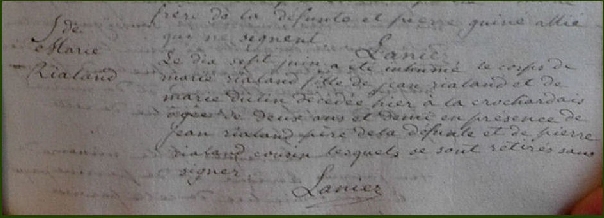 frère de la defunte et pierre quine allié
qui ne signent
Lanier
S. de
Marie
Rialand
Le dix sept juin a été inhumé le corps de
marie rialand fille de jean rialand et de
marie dutin décédée hier à la crochardais
agée de deux ans et demi en presence de
jean rialand père de la defunte et de pierre
rialand cousin lesquels se sont retirés sans
signer
Lanier